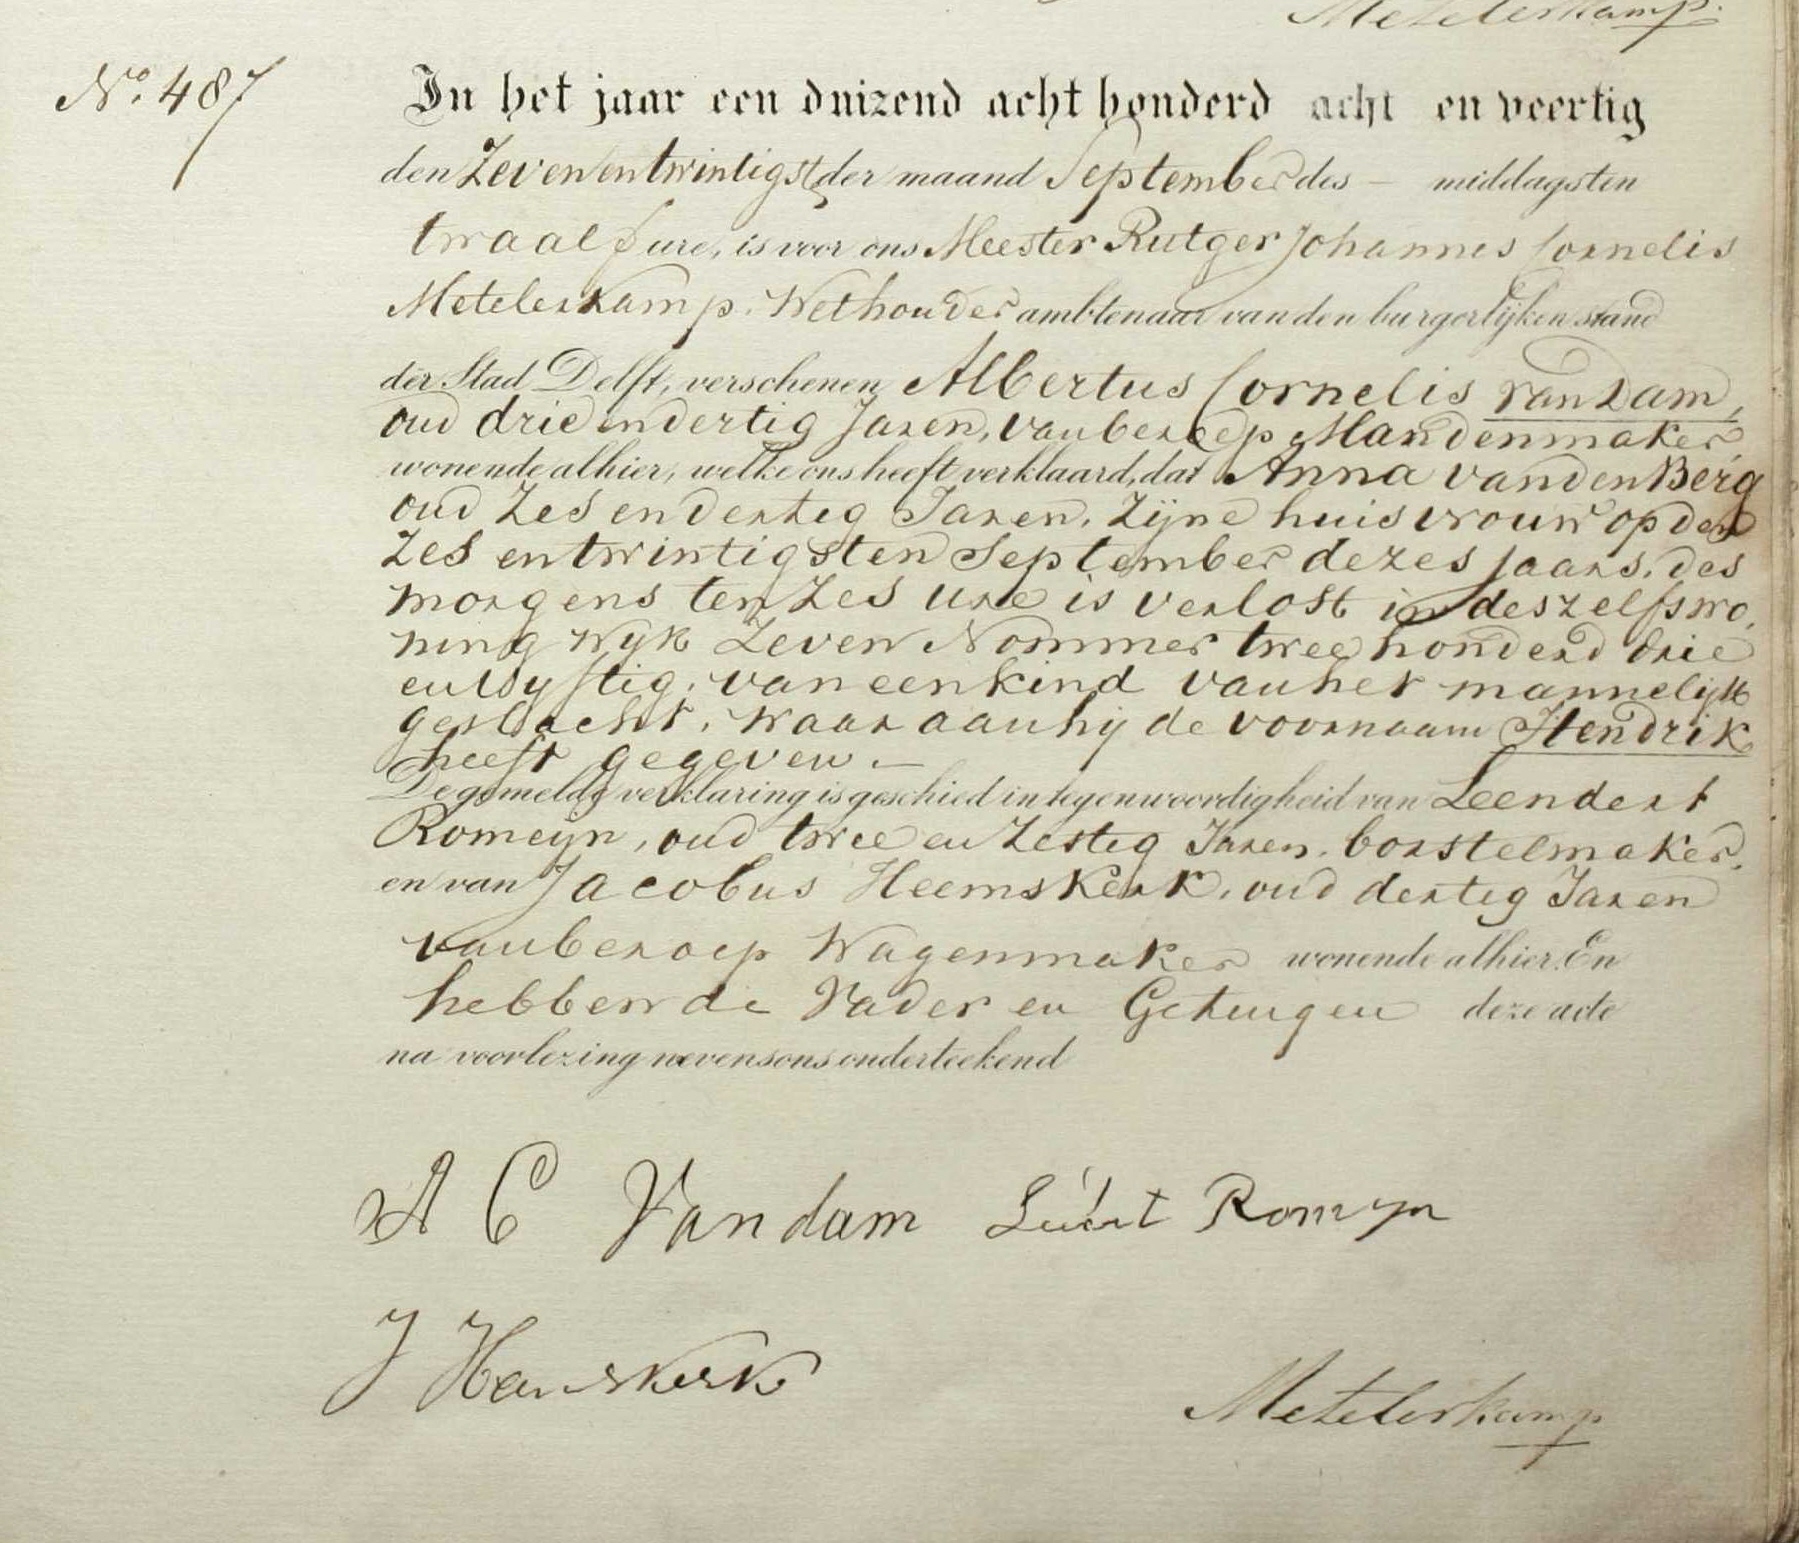 Metelerkamp.
No. 487
In het jaar een duizend acht honderd acht en veertig
den Zeven en twintigst der maand September des — middags ten
twaalf ure, is voor ons Meester Rutger Johannes Cornelis
Metelerkamp. Wethouder ambtenaar van den burgerlijken stand
der Stad Delft, verschenen Albertus Cornelis van Dam,
oud drie endertig Jaren, van beroep Mandenmaker
wonende alhier, welke ons heeft verklaard, dat Anna van den Berg
oud Zes en derteg Jaren, Zijne huisvrouw op den
Zes en twintigsten September dezes jaars, des
morgens ten Zes ure is verlost in deszelfs wo,
ning Wyk Zeven Nommer twee honderd drie
en Vyftig, van een kind van het mannelijk
geslacht, waar aan hij de voornaam Hendrik
heeft gegeven. —
De gemelde verklaring is geschied in tegenwoordigheid van Leendert
Romeyn, oud twee en Zesteg Jaren, borstelmaker,
en van Jacobus Heemskerk, oud derteg Jaren
van beroep Wagenmaker wonende alhier. En
hebben de Vader en Getuigen deze acte
na voorlezing nevens ons onderteekend
A C Van dam Romyn
J Hemskerk
Metelerkamp